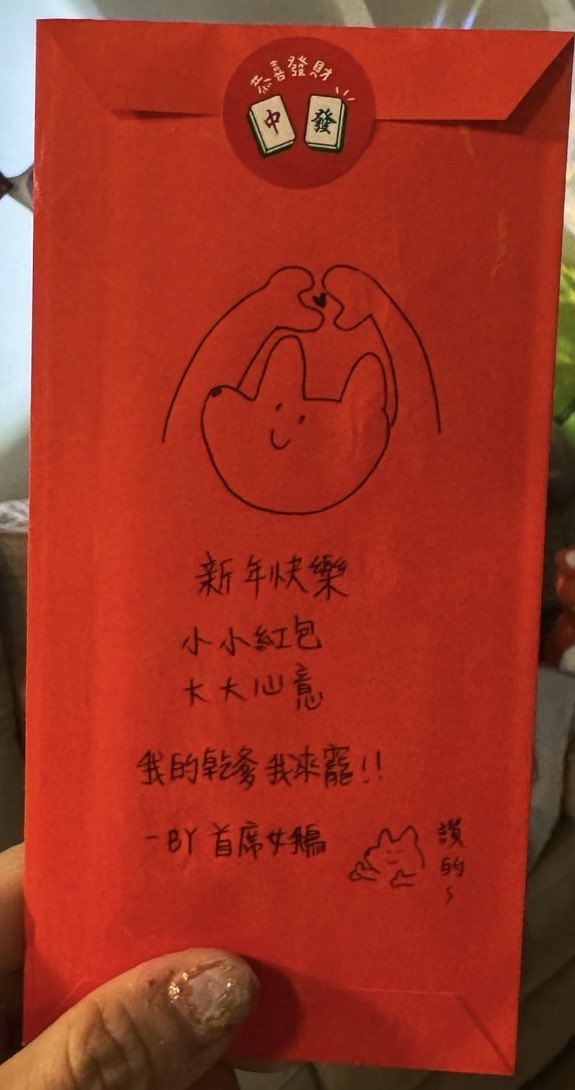 恭喜發財
中 發
新年快樂
小小紅包
大大心意
我的乾爹我來寵!!
-BY 首席女鵝
讚的~